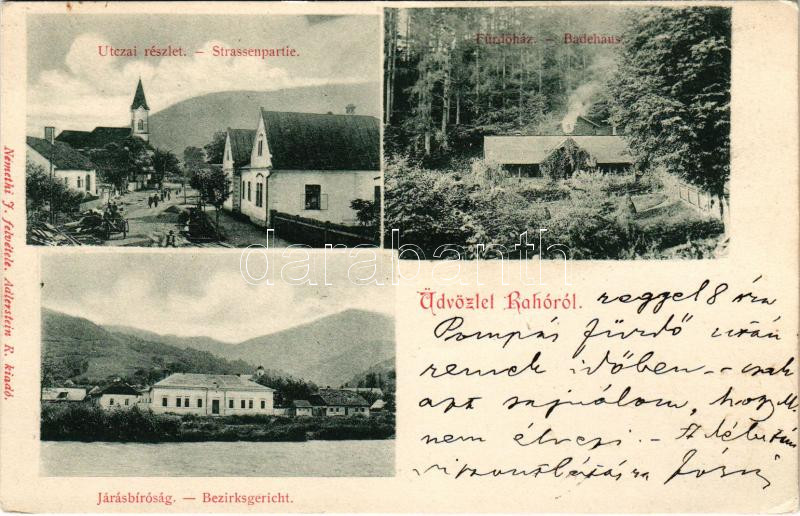 Utczai részlet. – Strassenpartie.
Fürdőház. – Badehaus.
Nemethi J. felvétele. Adlerstein R. kiadó.
darabanth
Üdvözlet Rahóról.
reggel 8 óra
Pompás fürdő után
remek időben – csak
azt sajnálom, hogy M.
nem élvezi. – A délutáni
viszontlátásra Józsi
Járásbíróság. — Bezirksgericht.